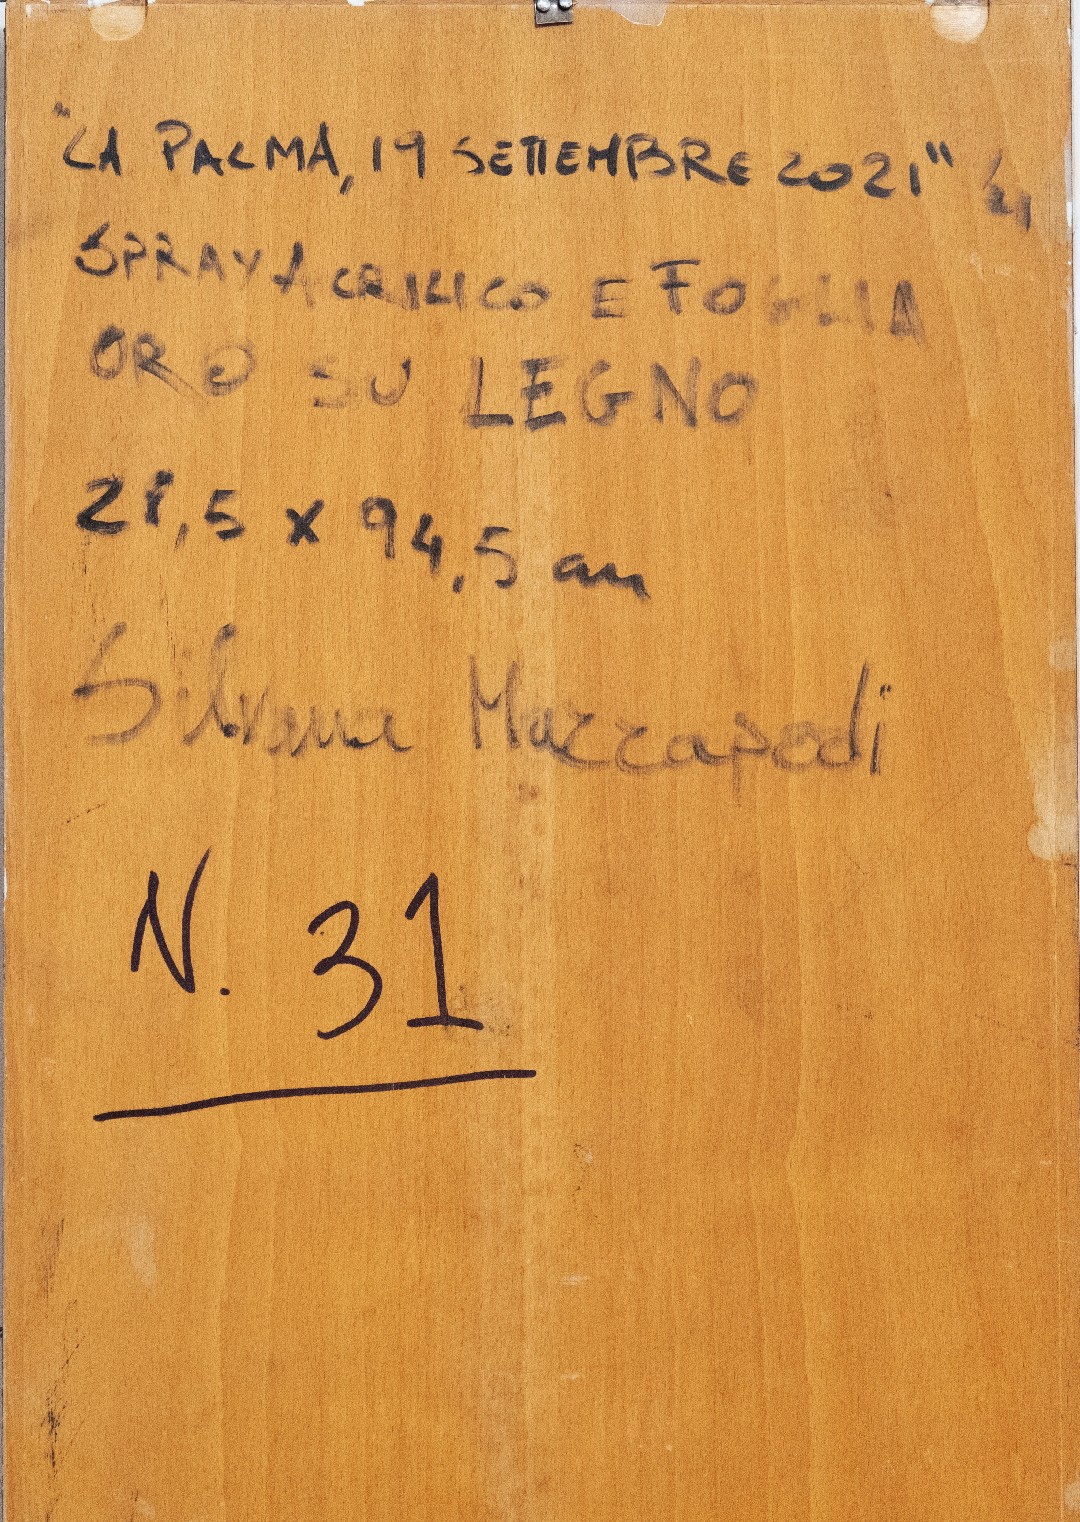 "LA PALMA, 19 SETTEMBRE 2021" '21
SPRAY ACRILICO E FOGLIA
ORO SU LEGNO
21,5 x 94,5 cm
Silvana Mazzapodi
N. 31